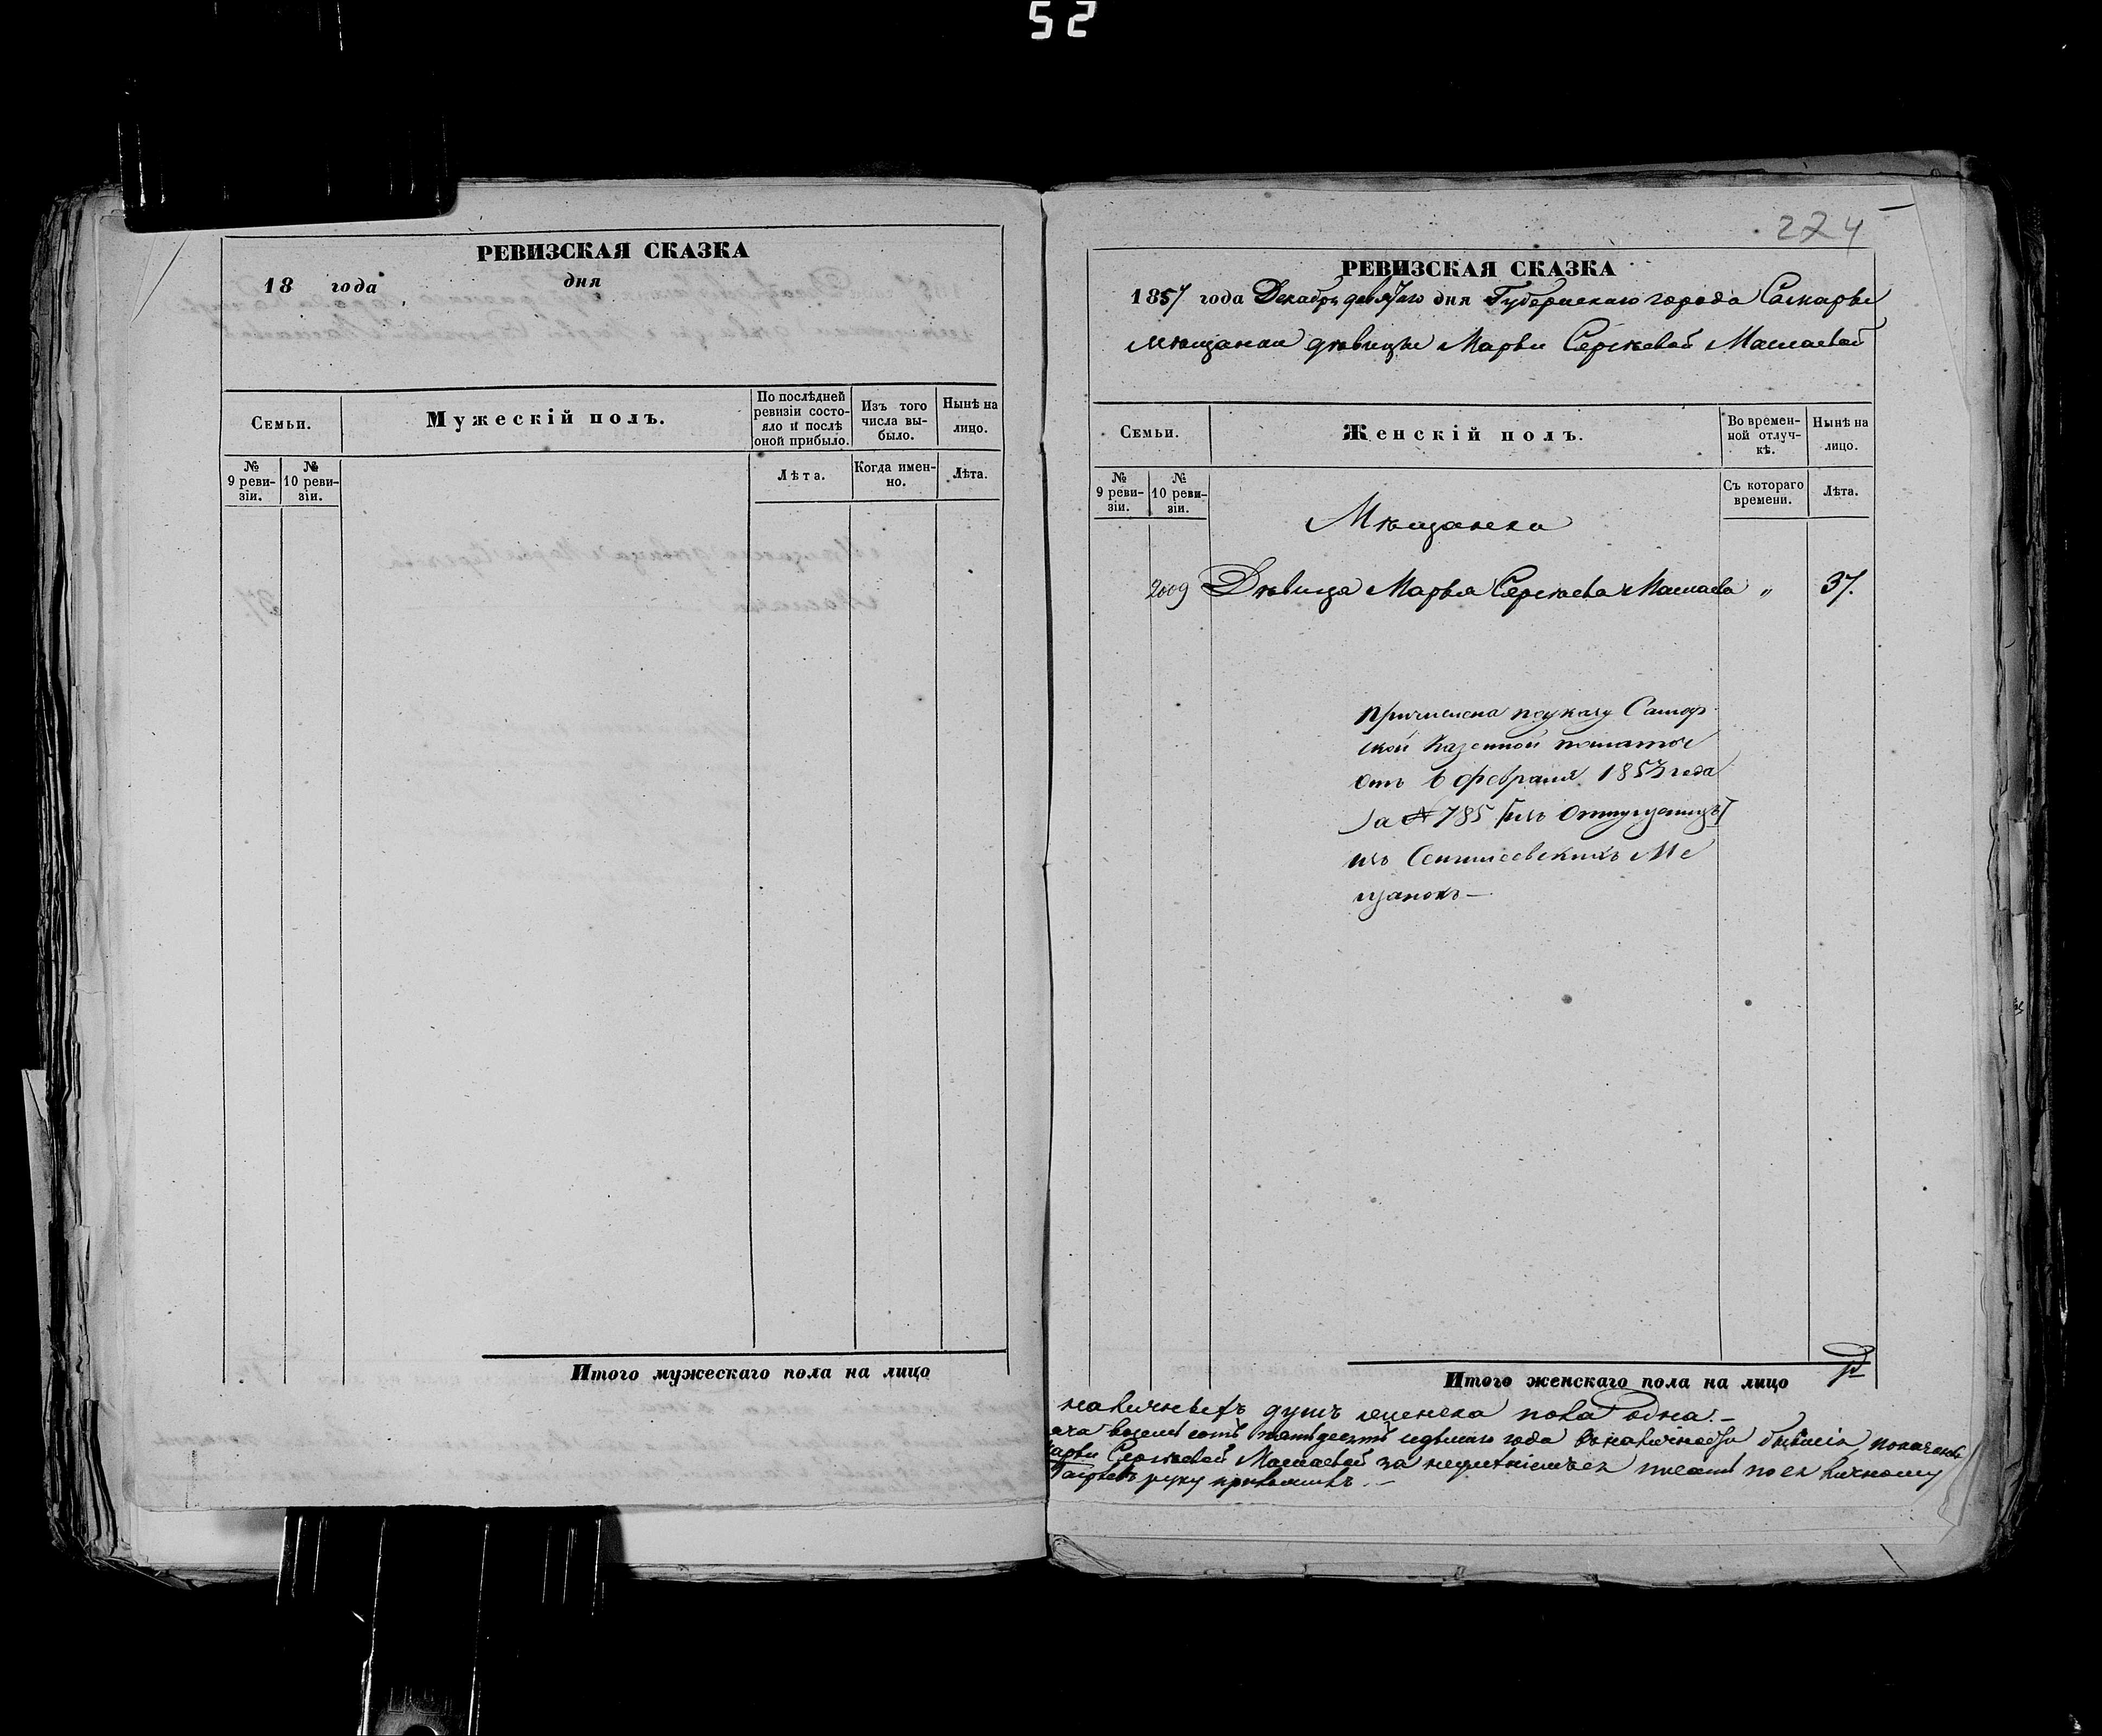 52
РЕВИЗСКАЯ СКАЗКА
18 года дня
Семьи.
Мужескій полъ.
По послѣдней ревизіи состояло и послѣ оной прибыло.
Изъ того числа выбыло.
Нынѣ на лицо.
№ 9 ревизіи.
№ 10 ревизіи.
Лѣта.
Когда именно.
Лѣта.
Итого мужескаго пола на лицо
224
РЕВИЗСКАЯ СКАЗКА
1857 года Декабря девятаго дня Губернскаго города Самары
мѣщанки дѣвицы Марьи Сергѣевой Маслаевой
Семьи.
Женскій полъ.
Во временной отлучкѣ.
Нынѣ на лицо.
№ 9 ревизіи.
№ 10 ревизіи.
Съ котораго времени.
Лѣта.
Мѣщанка
2009 Дѣвица Марья Сергѣева Маслаева " 37.
причислена по указу Самар
ской Казенной палаты
отъ 6 февраля 1853 года
за № 785
изъ Ме
щанокъ —
Итого женскаго пола на лицо
наличныхъ душъ женска пола одна. —
восемь сотъ пятьдесятъ седьмаго года
Сергѣевой Маслаевой за неумѣніемъ ея писать по ея личному
руку приложилъ. —